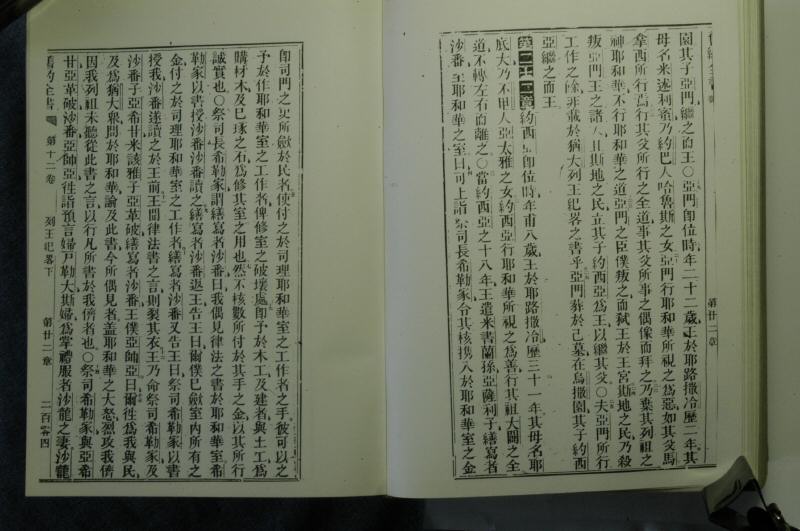 園其子亞門繼之而王〇亞門卽位時年二十二歲王於耶路撒冷歷二年其
母名米述利蜜乃約巴人哈魯斯之女亞門行耶和華所視之爲惡如其父馬
拿西所行焉行其父所行之全道事其父所事之偶像而拜之乃棄其列祖之
神耶和華不行耶和華之道亞門之臣僕叛之而弒王於王宮斯地之民乃殺
叛亞門王之諸人且斯地之民立其子約西亞爲王以繼其父〇夫亞門所行
工作之餘非載於猶大列王紀畧之書乎亞門葬於己墓在烏撒園其子約西
亞繼之而王
第二十二章約西亞卽位時年甫八歲王於耶路撒冷歷三十一年其母名耶
底大乃不甲人亞太雅之女約西亞行耶和華所視之爲善行其祖大闢之全
道不轉左右而離之〇當約西亞之十八年王遣米書蘭孫亞薩利子繕寫者
沙番至耶和華之室曰可上詣祭司長希勒家令其核攜入於耶和華室之金
第廿二章
卽司門之人所斂於民者使付之於司理耶和華室之工作者之手彼可以之
予於作耶和華室之工作者俾修室之破壞處卽予於木工及建者與土工爲
購材木及已琢之石爲修其室之用也然不核數所付於其手之金以其所行
誠實也〇祭司長希勒家謂繕寫者沙番曰我偶見律法之書於耶和華室希
勒家以書授沙番沙番讀之繕寫者沙番返王告王曰爾僕已斂室内所有之
金付之於司理耶和華室之工作者繕寫者沙番又告王曰祭司希勒家以書
授我沙番遂讀之於王前王聞律法書之言則裂其衣王乃命祭司希勒家及
沙番子亞希甘米該雅子亞革破繕寫者沙番王僕亞帥亞曰爾徃爲我與民
及爲猶大衆問於耶和華論及此書今所偶見者蓋耶和華之大怒烈攻我儕
因我列祖未聽從此書之言以行凡所書於我儕者也〇祭司希勒家與亞希
甘亞革破沙番亞帥亞徃詣預言婦戶勒大斯婦爲掌禮服者沙龍之妻沙龍
舊約全書 第十二卷 列王紀畧下 第廿二章 二百零四